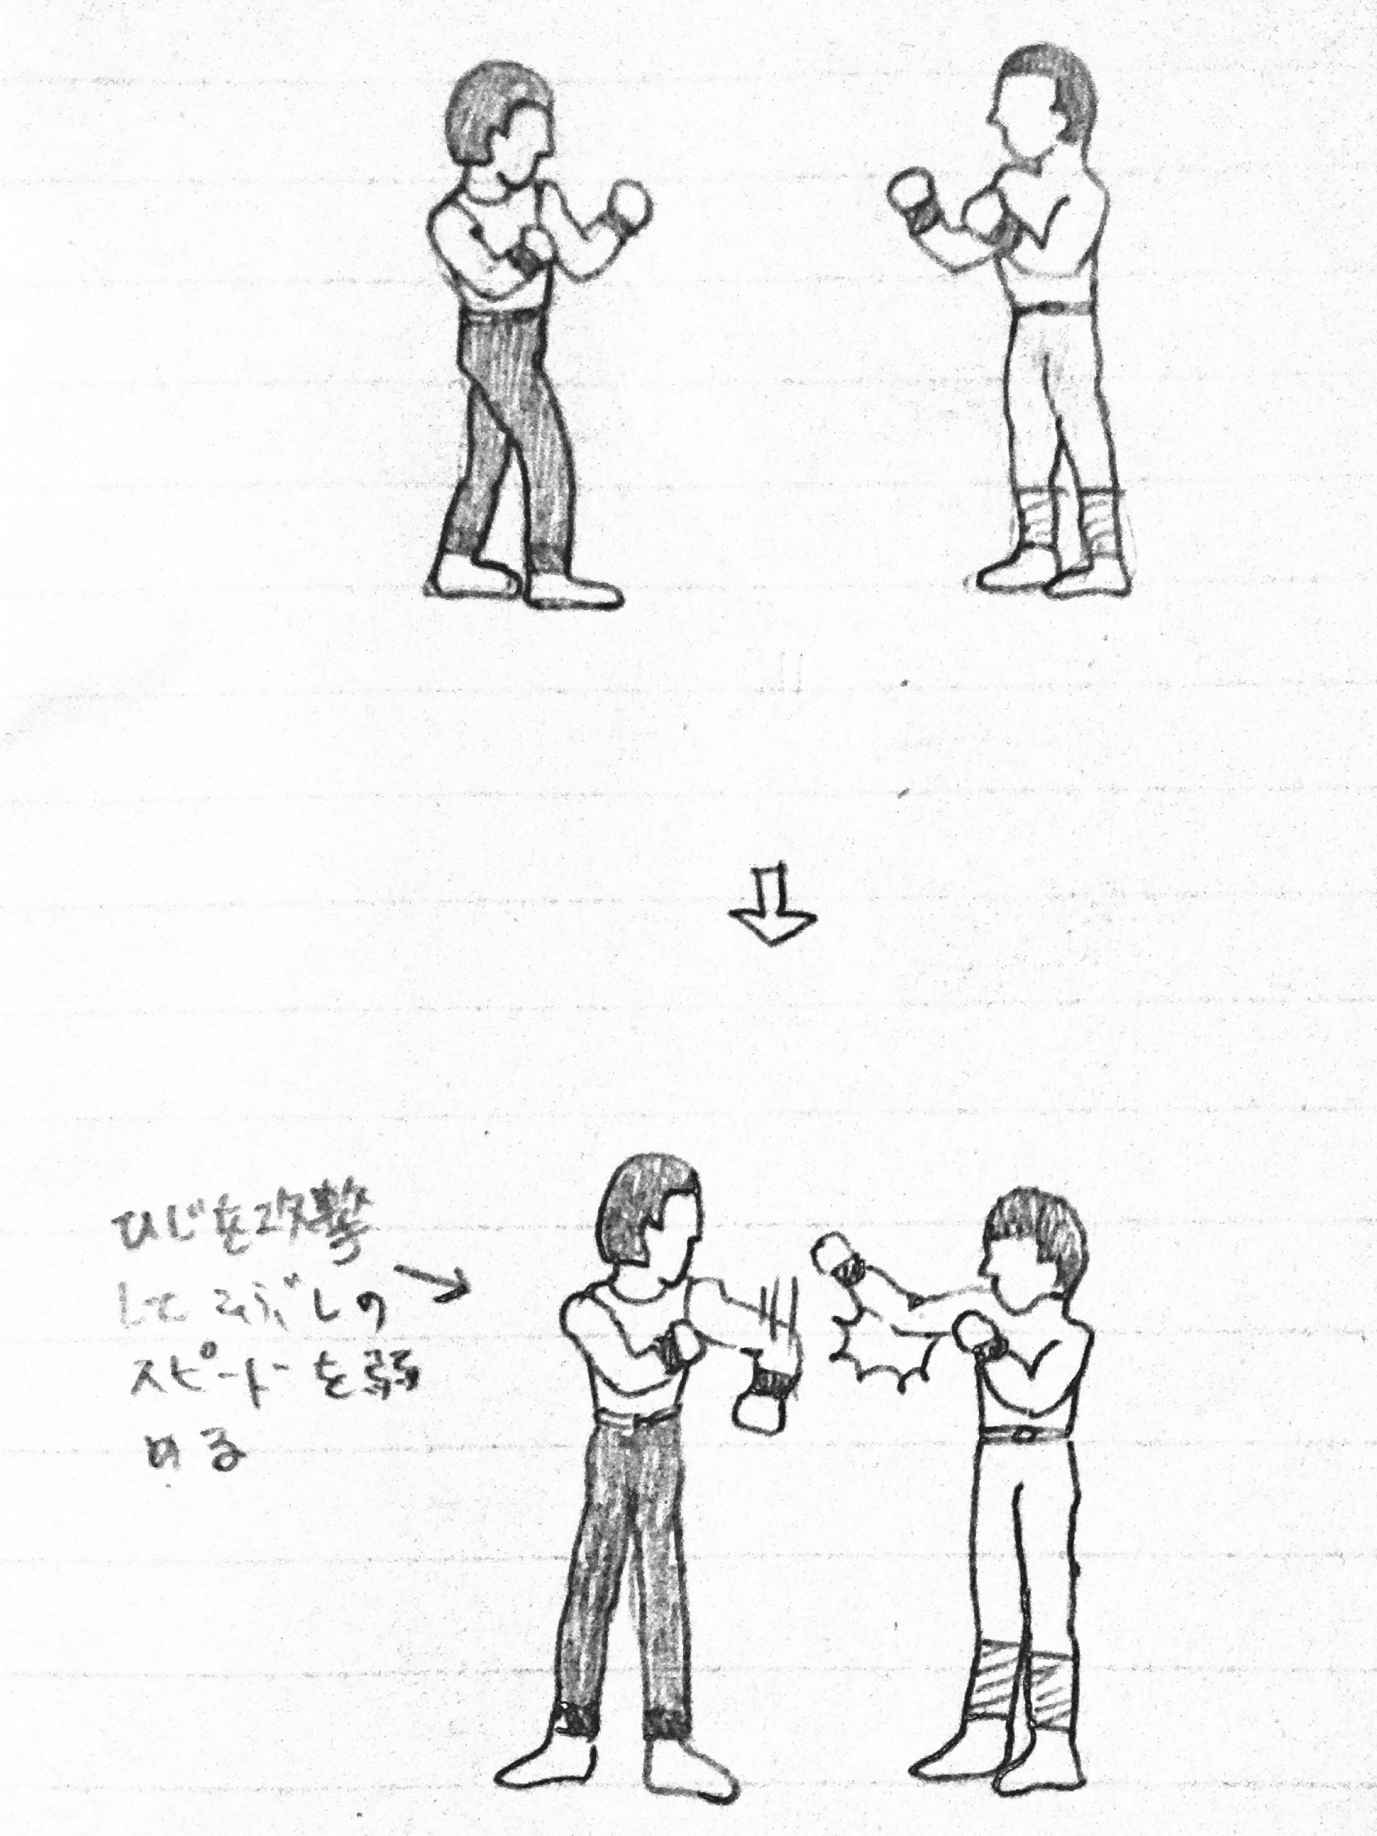 ひじを攻撃
してこぶしの
スピードを弱
める